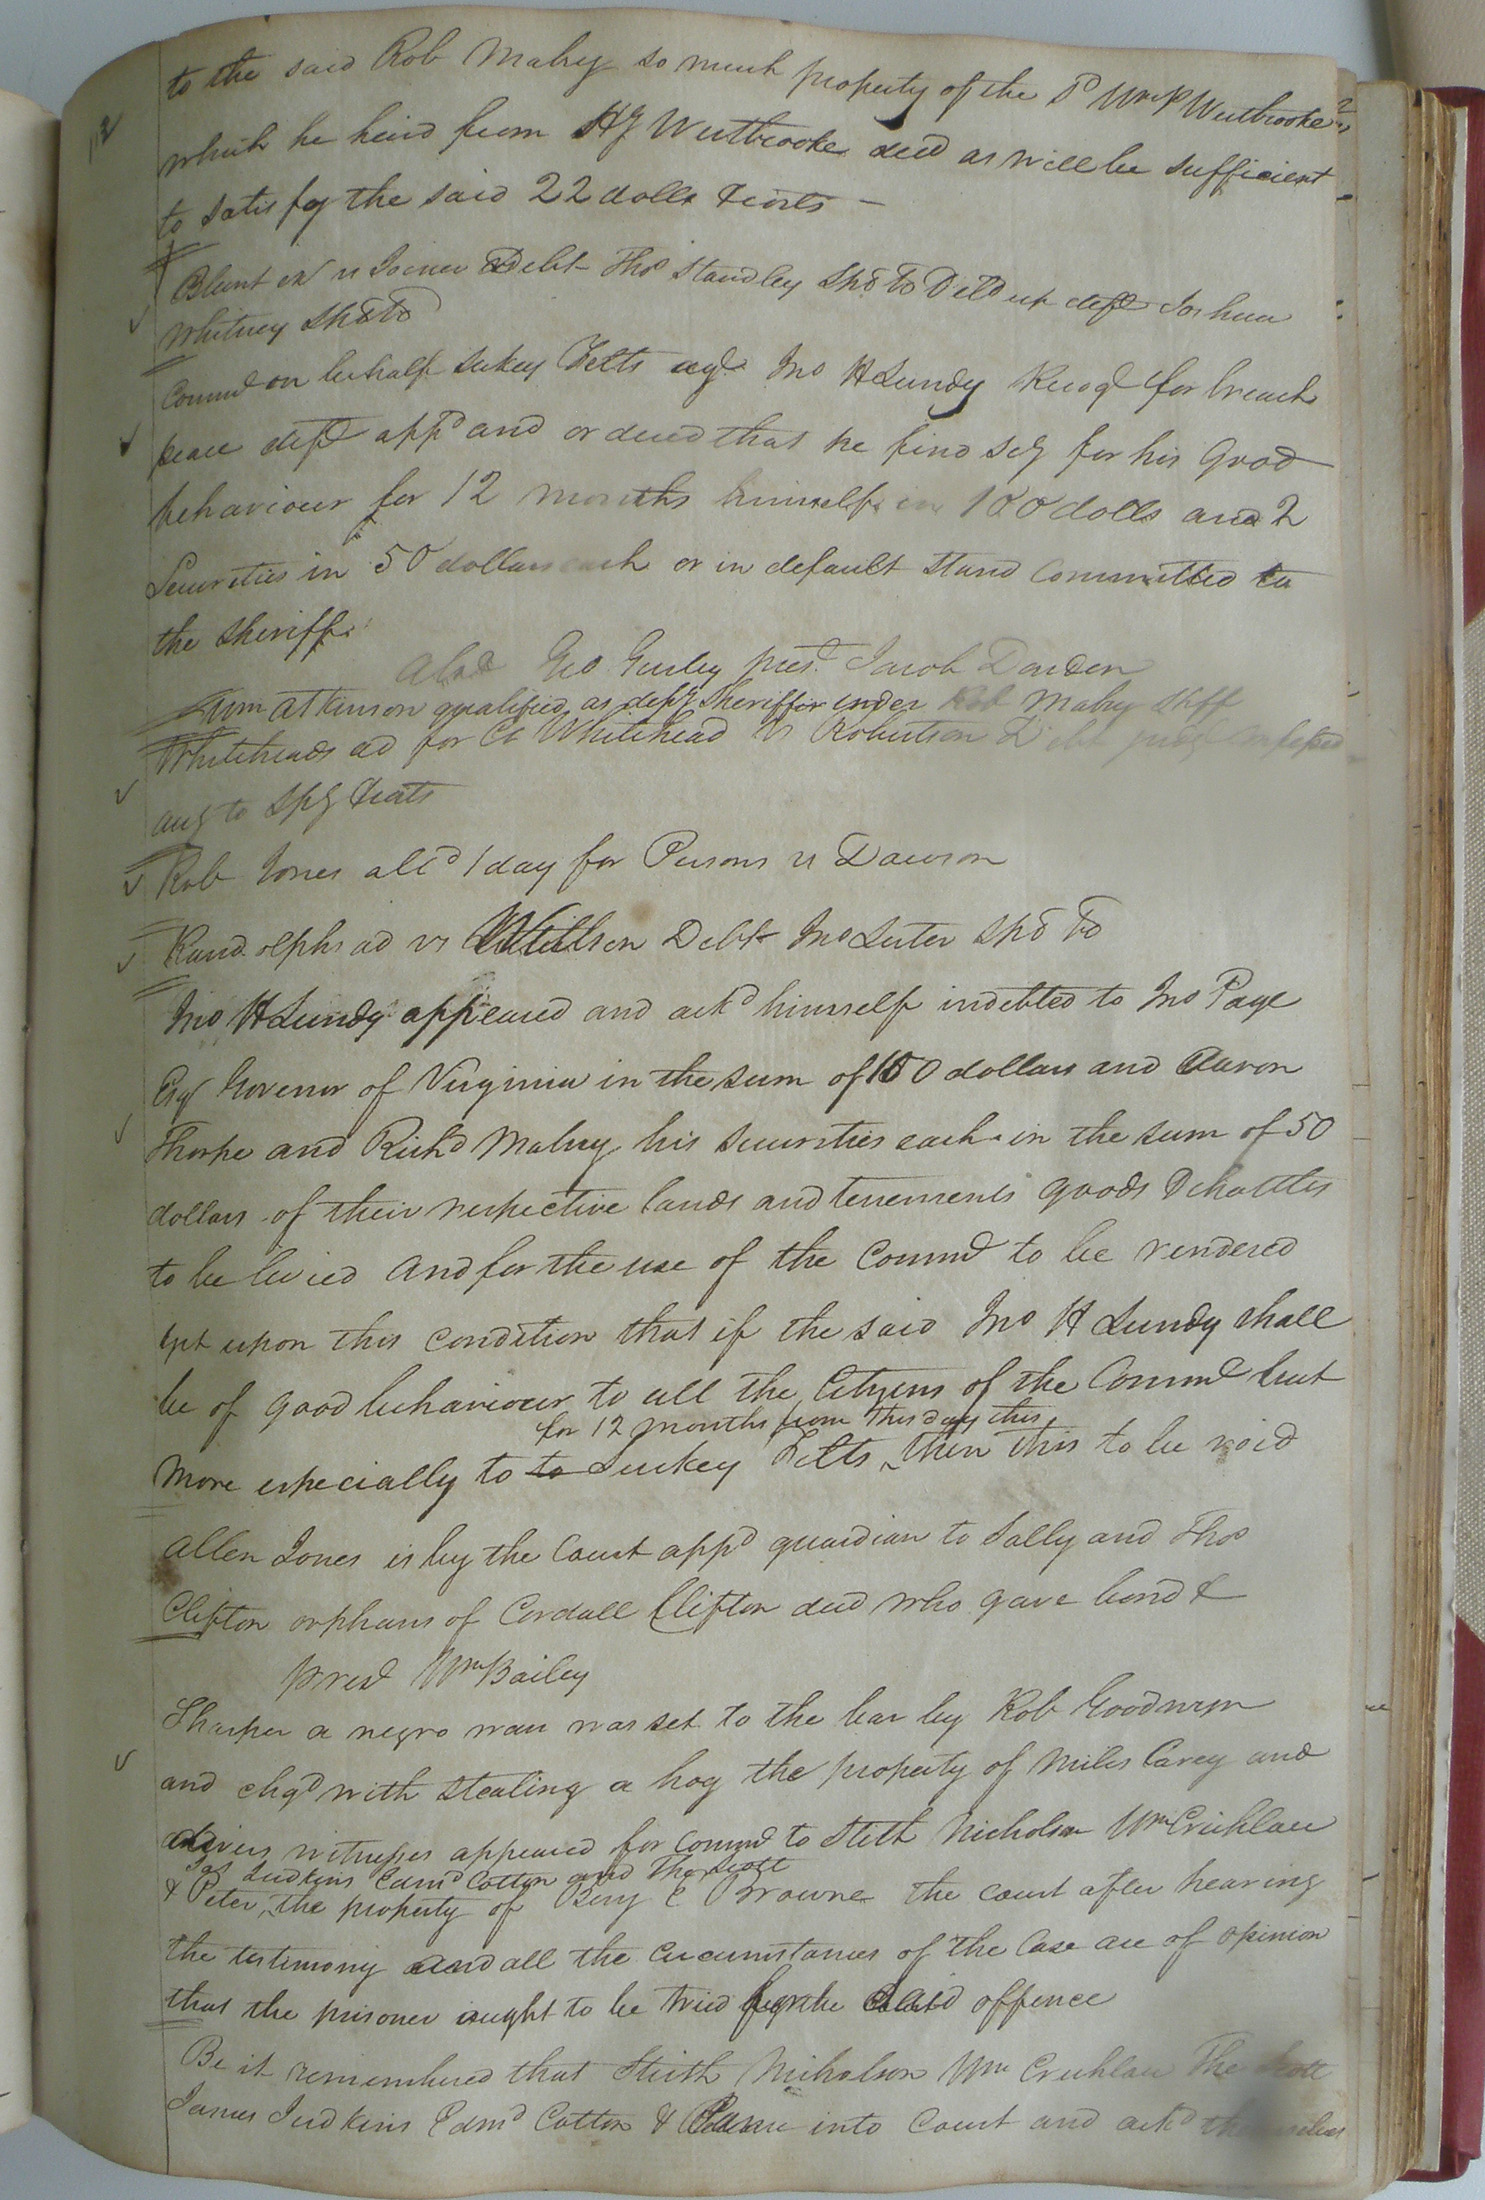 to the said Rob Mabry so much property of the sd Wm P Westbrooke
which he heird from H J Westbrooke decd as will be sufficient
to satisfy the said 22 dolls & costs –
Blunt exr vs Joiner Debt Thos Standley Shd To Deld up deft Joshua
Whitney Shd To
Commd on behalf Sukey Felts agt Jno H Lundy Recogd for breach
peace deft appd and ordered that he find Scy for his good
behaviour for 12 months himself in 100 dolls and 2
Securities in 50 dollars each or in default Stand Committed to
the Sheriff
Geo Gurley prest Jacob Darden
Wm Atkinson qualified as depy Sheriff under Rob Mabry Shff
Whiteheads ad for Whitehead vs Robertson Debt judgt confessed
to Spy & costs
Rob Jones alld 1 day for Persons vs Dawson
Randolphs ad vs Willson Debt Jno Luter Shd To
Jno H Lundy appeared and ackd himself indebted to Jno Page
Esqr Governor of Virginia in the sum of 100 dollars and Aaron
Thorpe and Richd Mabry his Securities each in the sum of 50
dollars of their respective lands and tenements goods & chattles
to be levied and for the use of the Commd to be rendered
yet upon this condition that if the said Jno H Lundy shall
be of good behaviour to all the Citizens of the Commd but
for 12 months from this day this
more especially to to Suckey Felts then this to be void
Allen Jones is by the Court appd guardian to Sally and Thos
Clifton orphans of Cordall Clifton decd who gave bond &
prest Wm Bailey
Sharper a negro man was set to the bar by Rob Goodwyn
and chgd with stealing a hog the property of Miles Carey and
divers witnesses appeared for Commd to Stith Nicholson Wm Crichlau
Jas Judkins Edmd Cotton and Tho Scott
& Peter, the property of Benj E Browne the court after hearing
the testimony and all the Circumstances of the Case are of opinion
that the prisoner ought to be tried for the said offence
Be it remembered that Stith Nicholson Wm Crichlau Tho Scott
James Judkins Edmd Cotton & came into Court and ackd themselves